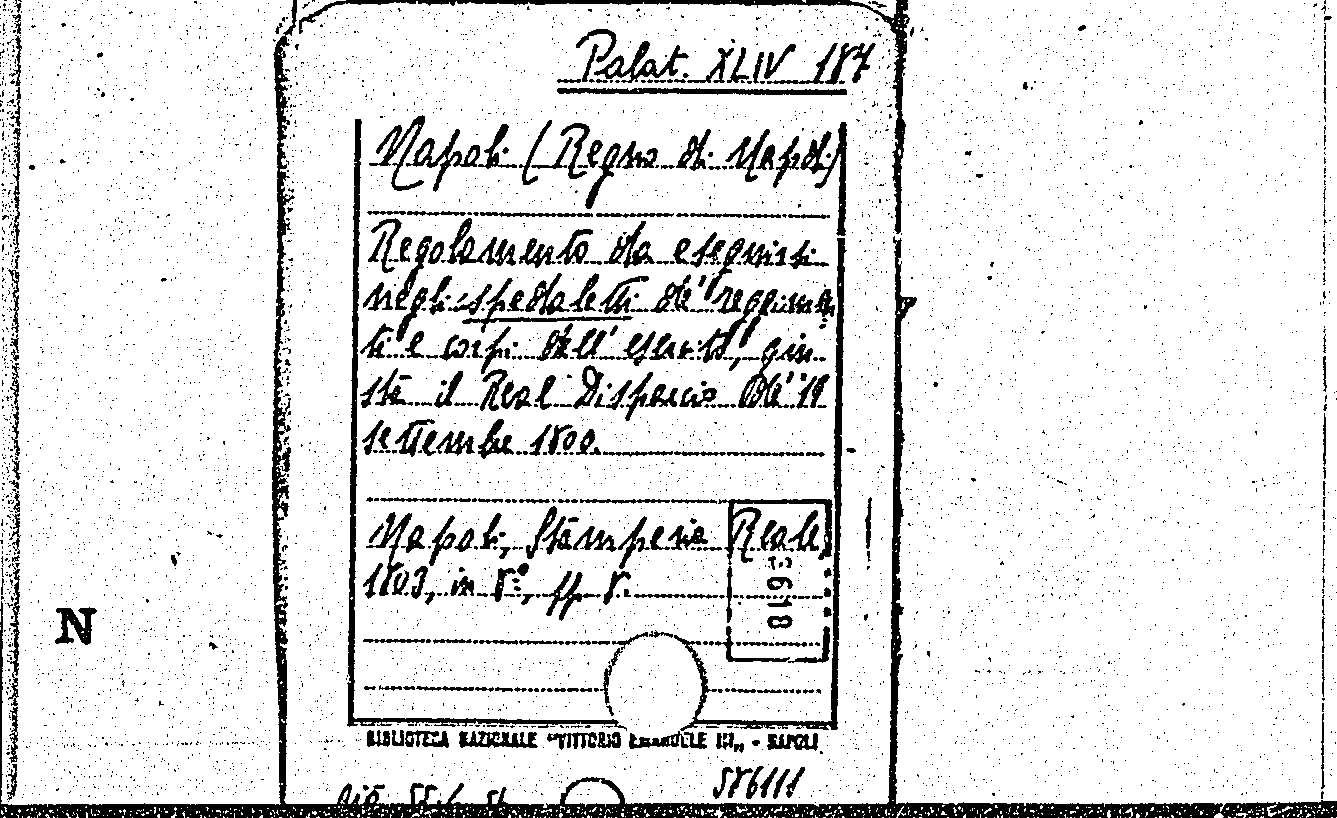 Palat. XLIV 187
Napoli (Regno di Napoli)
Regolamento da eseguirsi
negli spedaletti de' reggimen
ti e corpi dell' esercito, giu
sta il Real Dispaccio de' 19
settembre 1800.
Napoli, Stamperia Reale,
1803, in 8º, pp. 8.
3618
N
BIBLIOTECA NAZIONALE "VITTORIO EMANUELE III" - NAPOLI
586111